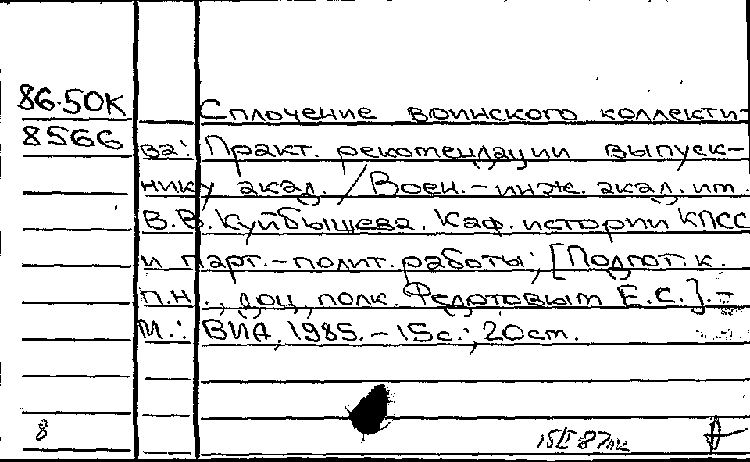 86-50К
8566
Сплочение воинского коллекти-
ва: Практ. рекомендации выпуск-
нику акад. / Воен.-инж. акад. им.
В.В. Куйбышева. Каф. истории КПСС
и парт.-полит. работы; [Подгот. к.
п.н., доц., полк. Федотовым Е.С.].-
М.: ВИА, 1985.- 15с.; 20см.
8